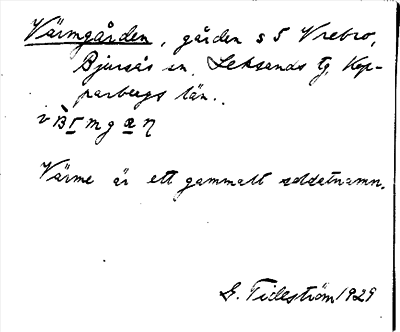 Värmgården, gården s 5 Vrebro,
Bjursås sn. Leksands tg, Kop-
parbergs län.
Värme är ett gammalt soldatnamn.
G. Tideström 1929